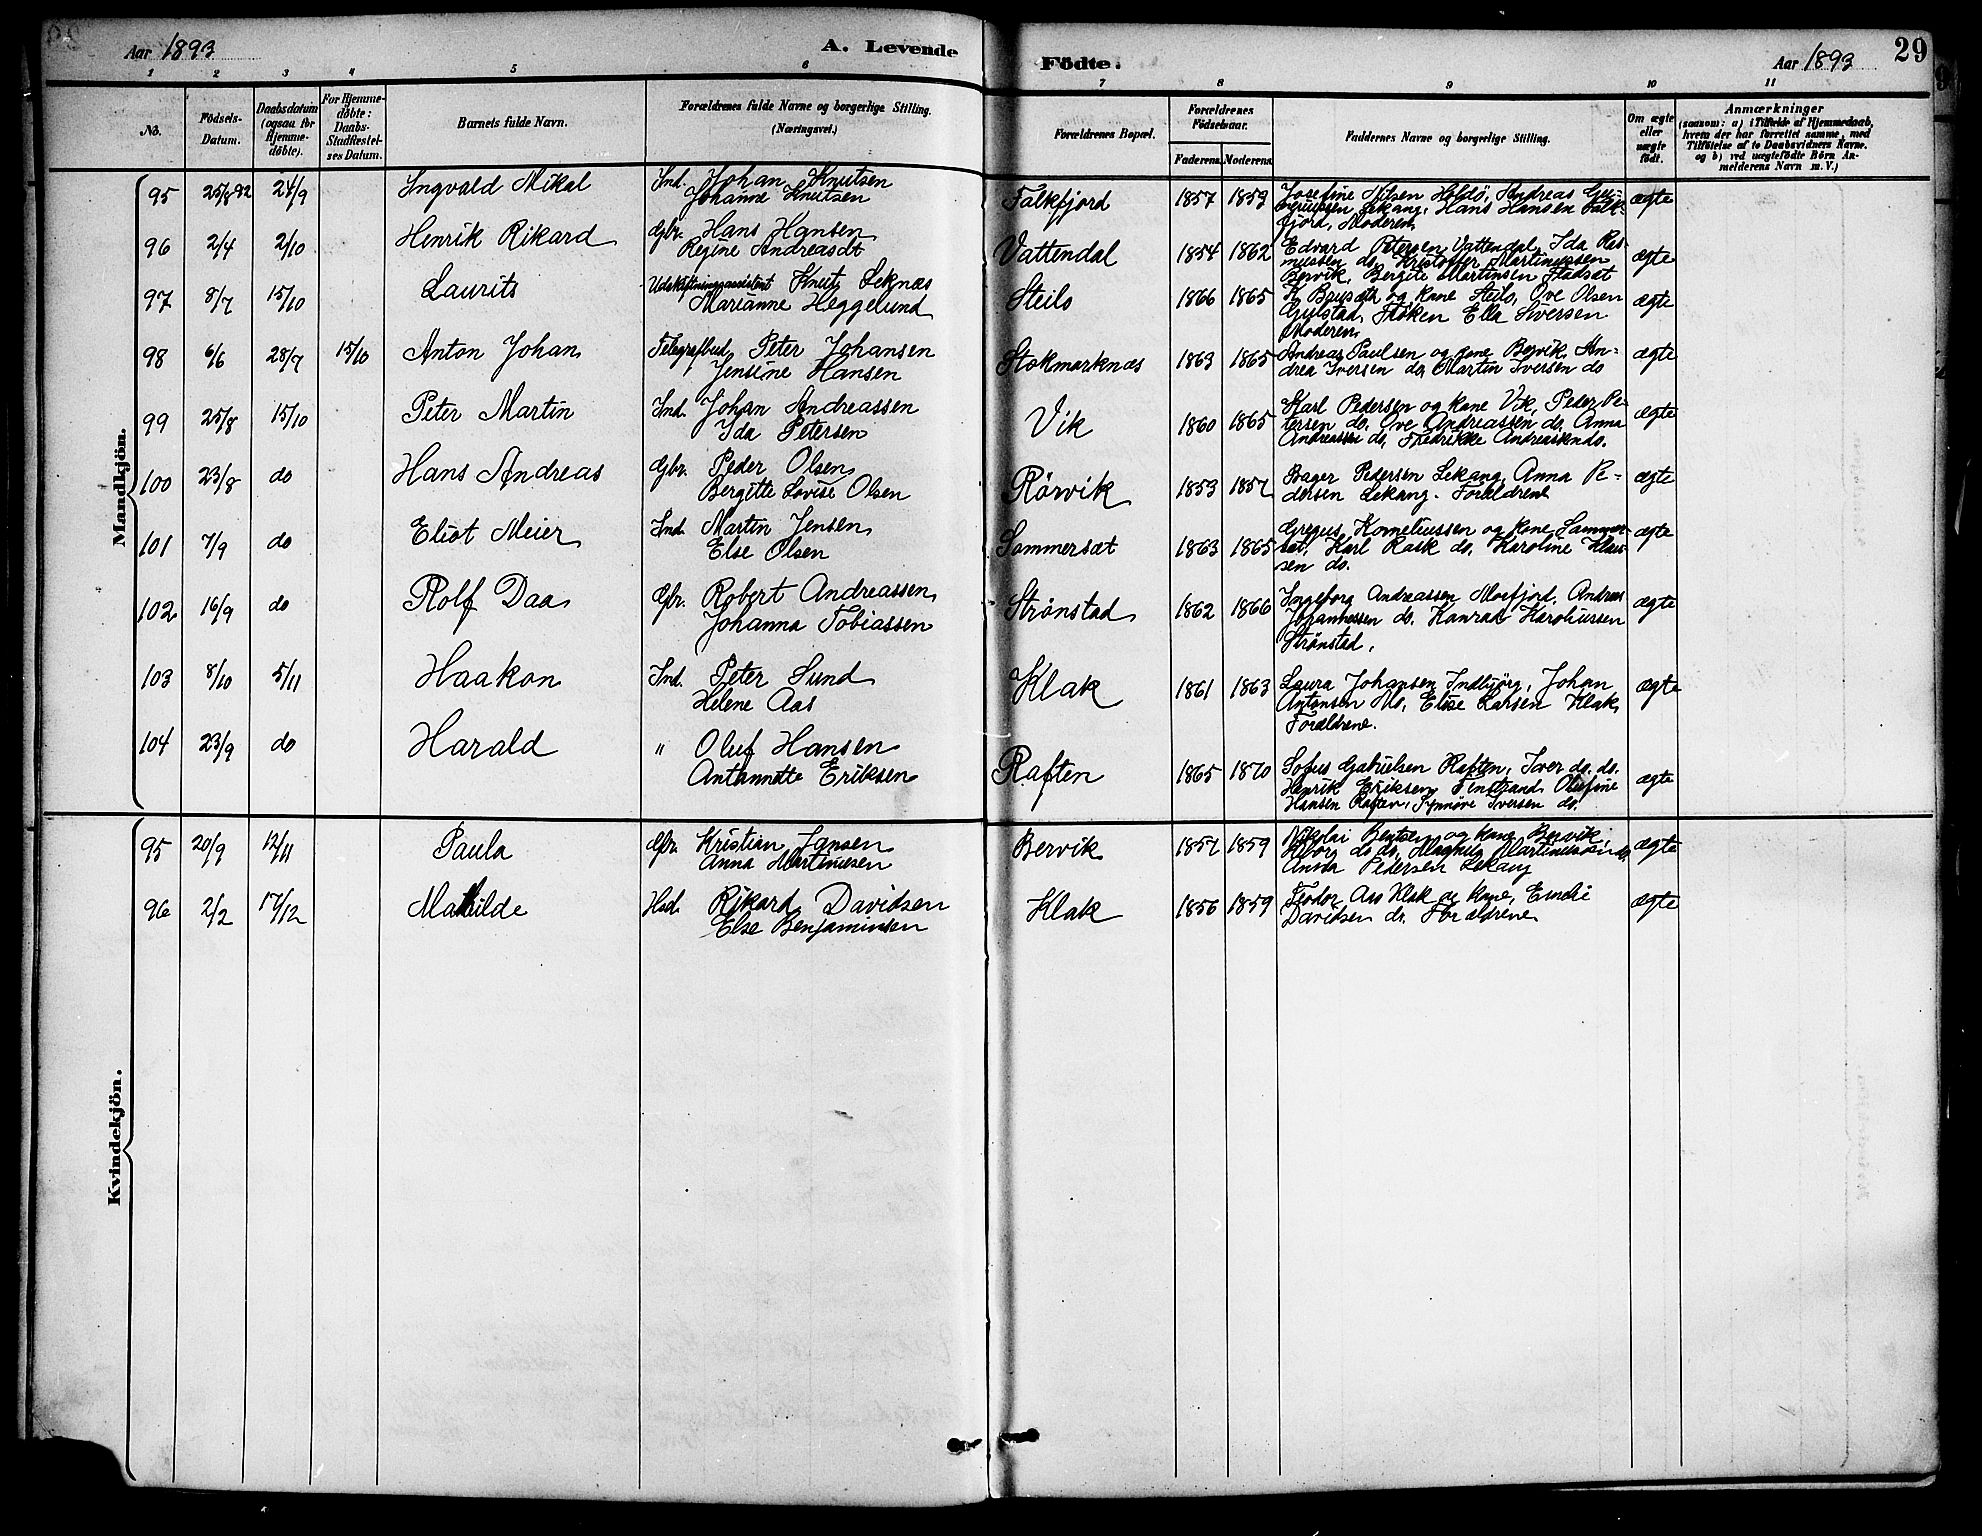 Aar 1893
A. Levende
Födte.
Aar 1893
29
1 2 3 4 5 6 7 8 9 10 11
No.
Födsels-Datum.
Daabsdatum (ogsaa for Hjemme-döbte).
For Hjemme-döbte: Daabs-Stadfæstel-ses Datum.
Barnets fulde Navn.
Forældrenes fulde Navne og borgerlige Stilling.
(Næringsvei.)
Forældrenes Bopæl.
Forældrenes Födselsaar.
Faderens. Moderens.
Faddernes Navne og borgerlige Stilling.
Om ægte eller uægte födt.
Anmærkninger
(saasom: a) i Tilfælde af Hjemmedaab,
hvem der har forrettet samme, med
Tilföielse af to Daabsvidners Navne,
og b) ved uægtefödte Börn An-
melderens Navn m. V.)
Mandkjön.
95 25/8 92 24/9 Ingvald Mikal Ind. Johan Knutsen
Johanna Knutsen
Falkfjord 1857 1859 Josefine Nilsen Holdö, Andreas
Lekang, Hans Hansen Falk-
fjord, Moderen
ægte
96 2/4 2/10 Henrik Rikard Gbr. Hans Hansen
Regine Andreasdt
Vattendal 1854 1862 Edvard Petersen Vattendal, Ida Ras-
mussen do, Kristoffer Martinussen
Bervik, Bergite Martinsen Hadset
ægte
97 8/7 15/10 Laurits Udskiftningsassistent Knut Leknæs
Marianne Heggelund
Steilo 1866 1865 K. Brusæth og kone Steilo, Ove Olsen
Gulstad, Frøken Ella Siversen
Moderen
ægte
98 6/6 28/7 15/10 Anton Johan Telegrafbud Peter Johansen
Jensine Hansen
Stokmarknæs 1863 1865 Andreas Paulsen og kone Bervik, An-
drea Iversen do, Martin Iversen do
ægte
99 25/8 15/10 Peter Martin Ind. Johan Andreassen
Ida Petersen
Vik 1860 1865 Karl Pedersen og kone Vik, Peder Pe-
tersen do, Ove Andreassen do, Anna
Andreassen do, Fredrikke Andreassen do.
ægte
100 23/8 do Hans Andreas Gbr. Peder Olsen
Bergitte Lovise Olsen
Rörvik 1853 1857 Bager Pedersen Lekang, Anna Pe-
dersen Lekang. Forældrene
ægte
101 7/9 do Eliot Meier Ind. Martin Jensen
Else Olsen
Sommersæt 1863 1865 Gregus Korneliussen og kone Sommer-
sæt, Karl Rask do, Karoline Klau-
sen do.
ægte
102 16/9 do Rolf Daa Gbr. Robert Andreassen
Johanna Tobiassen
Strönstad 1862 1866 Ingeborg Andreassen Morfjord, Andreas
Johannessen do. Konrad
Strönstad.
ægte
103 8/10 5/11 Haakon Ind. Peter Lund
Helene Aas
Klak 1861 1863 Laura Johansen Indbjörg, Johan
Antonsen Mo, Elise Larsen Klak,
Forældrene.
ægte
104 23/9 do Harald " Oluf Hansen
Antonnette Eriksen
Raften 1865 1870 Sofus Gabrielsen Raften, Iver do. do.
Henrik Eriksen Finstrand Olufine
Hansen Raften, Synnöve Iversen do.
ægte
Kvindekjön.
95 20/9 12/11 Paula Gbr. Kristian Jansen
Anna Martinusen
Bervik 1857 1859 Nikolai Bentsen og kone Bervik,
do do, Magnus Martinussen do,
Anna Pedersen Lekang
ægte
96 2/2 17/12 Mathilde Hsd. Rikard Davidsen
Else Benjaminsen
Klak 1856 1859 Teodor Aas Klak og kone, Emelie
Davidsen do. Forældrene
ægte